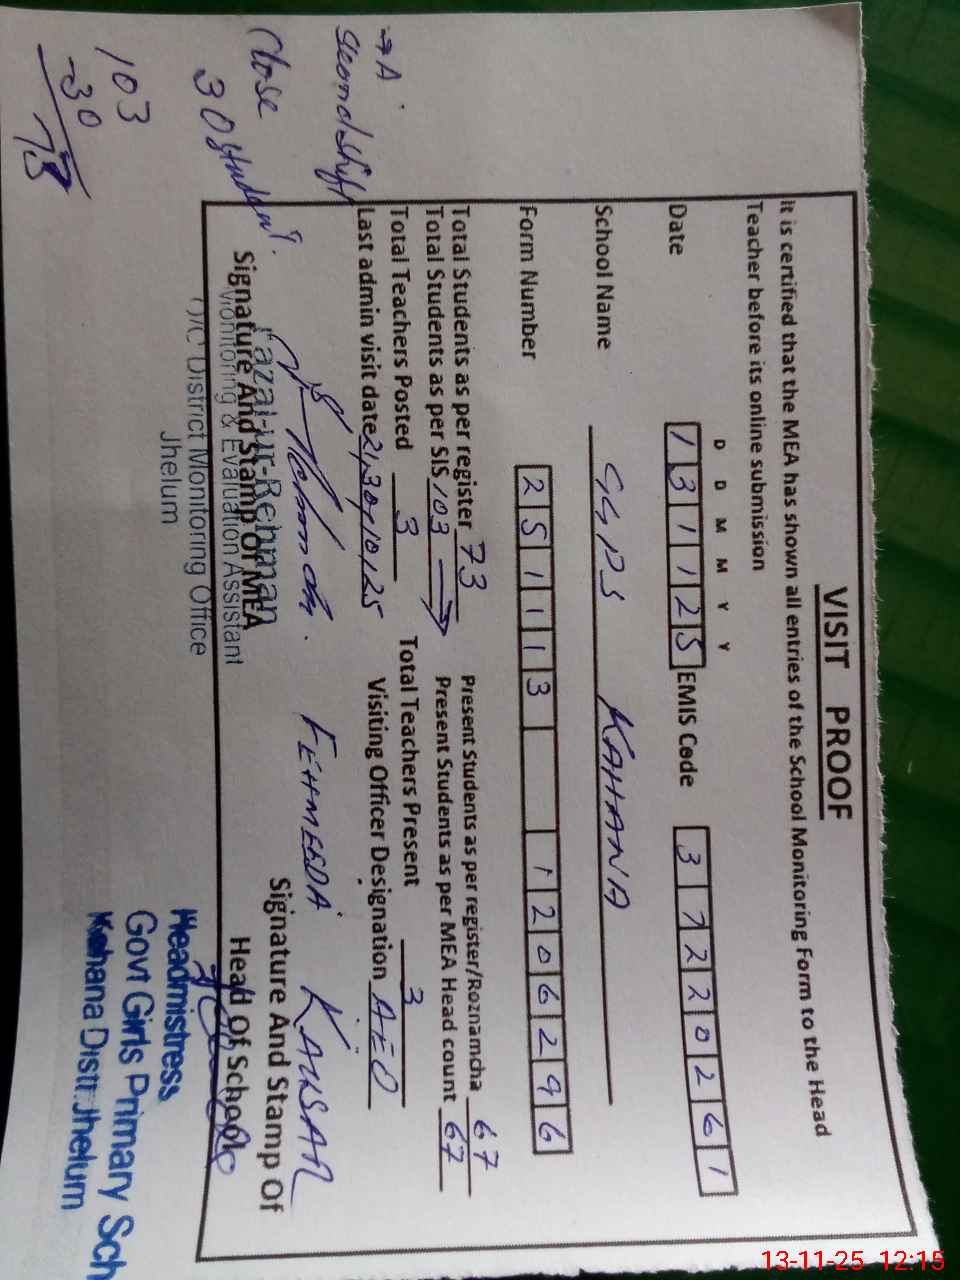 VISIT PROOF
It is certified that the MEA has shown all entries of the School Monitoring Form to the Head
Teacher before its online submission
D D M M Y Y
Date 1 3 1 1 2 5 EMIS Code 3 7 2 2 0 2 6 1
School Name GGPS KAHANA
Form Number 2 5 1 1 1 3 1 2 0 6 2 9 6
Total Students as per register 73 Present Students as per register/Roznamcha 67
Total Students as per SIS 103 → Present Students as per MEA Head count 67
Total Teachers Posted 3 Total Teachers Present 3
Last admin visit date 30,10,25 Visiting Officer Designation AEO
FEHMEEDA KAUSAR
Signature And Stamp Of MEA
Fazal-ur-Rehman
Monitoring & Evaluation Assistant
O/C District Monitoring Office
Jhelum
Signature And Stamp Of
Head Of School
Headmistress
Govt Girls Primary Sch
Kahana Distt: Jhelum
→ A
second shift
close
30 student
103
-30
73
13-11-25 12:15